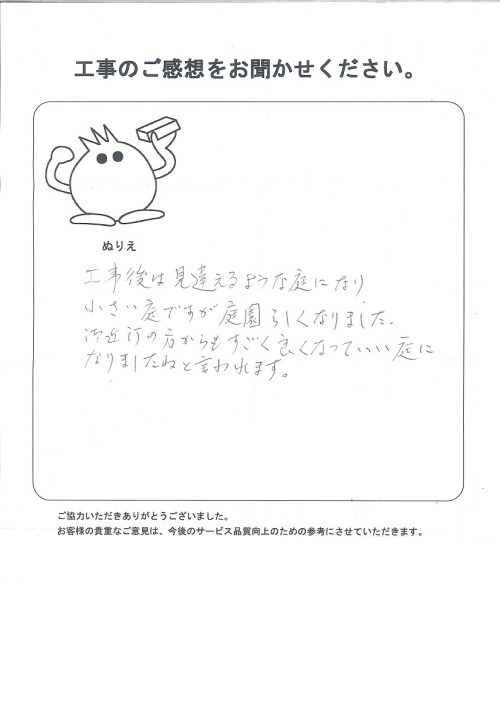 工事のご感想をお聞かせください。
ぬりえ
工事後は見違えるような庭になり
小さい庭ですが庭園らしくなりました。
御近所の方からもすごく良くなっていい庭に
なりましたねと言われます。
ご協力いただきありがとうございました。
お客様の貴重なご意見は、今後のサービス品質向上のための参考にさせていただきます。